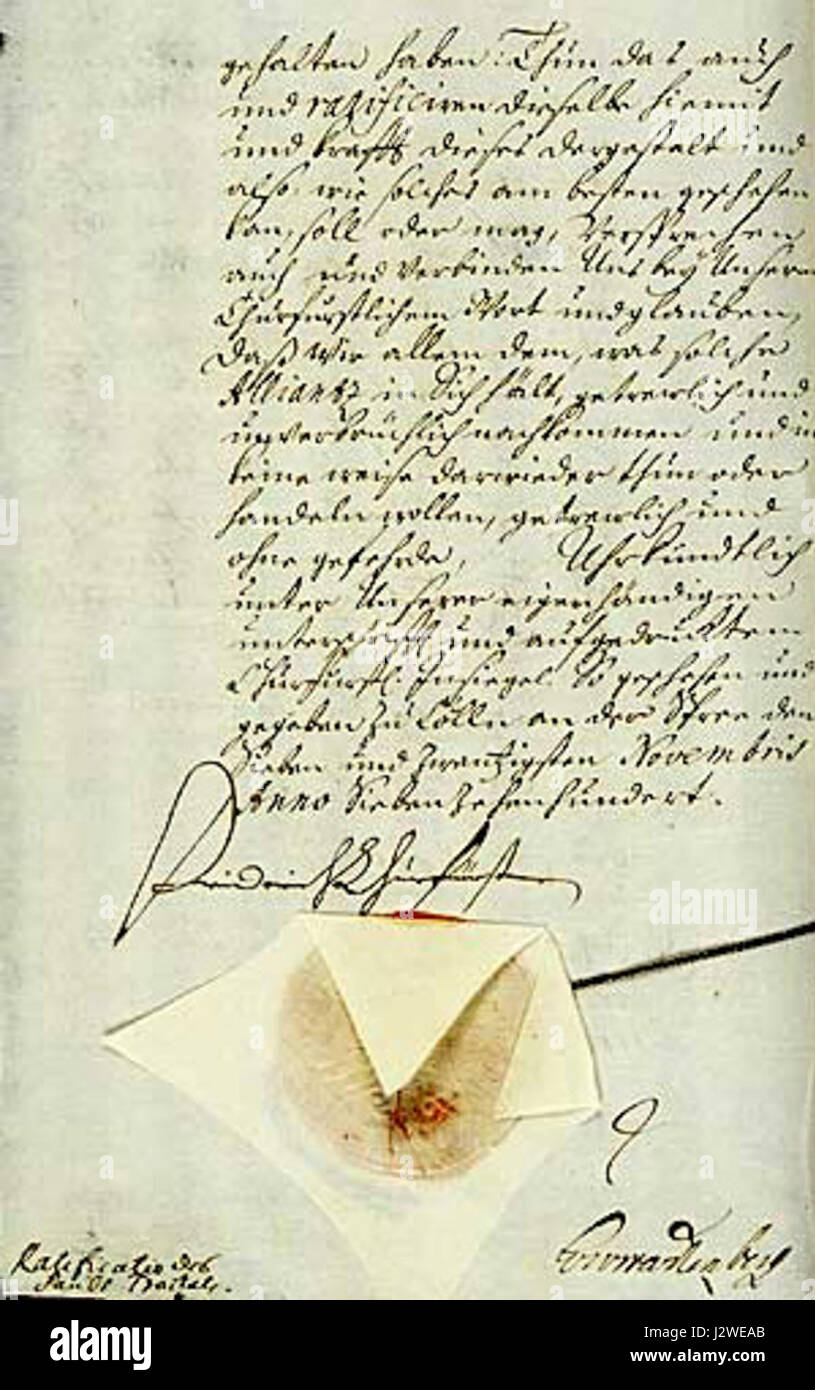 gehalten haben: Thun das auch
und ratificiren dieselbe hiemit
und krafft dieses dergestalt und
also, wie solches am besten geschehen
kan, soll oder mag, Versprechen
auch und Verbinden Uns bey Unserm
Churfürstlichem Wort und glauben,
daß Wir allem dem, was solche
Alliantz in Sich hält, getrewlich und
unverbrüchlich nachkommen und in
keine weise darwieder thun oder
handeln wollen, getrewlich und
ohne gefehrde, Uhrkundtlich
unter Unserer eigenhändigen
unterschrifft und aufgedrucktem
Churfürstl. Insiegel. So geschehen und
gegeben zu Cölln an der Spree den
Sieben und zwantzigsten Novembris
Anno Siebenzehenhundert.
Friderich Churfürst
Ratificatio des
Tractats.
alamy
Image ID: J2WEAB
www.alamy.com